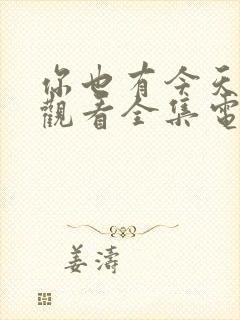 你也有今天
觀看全集電
姜濤